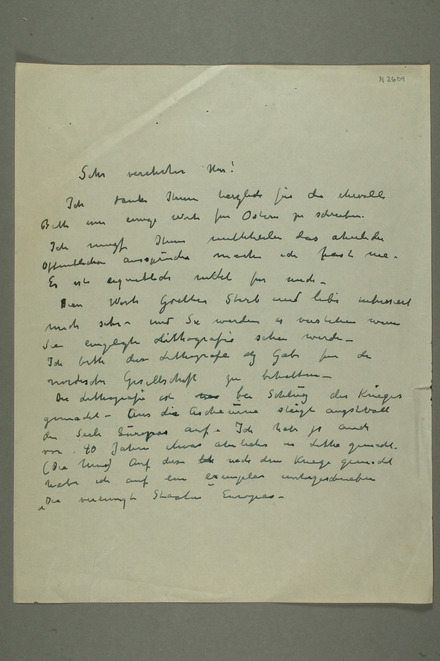 N 2601
Sehr verehrter Herr!
Ich danke Ihnen herzlich für die ehrvolle
Bitte um einige Worte für Ostern zu schreiben.
Ich muss Ihnen mittheilen das ähnliche
öffentlichen aussprüche machte ich fast nie.
Es ist eigentlich nicht für mich.
Dem Worte Goethes Stirb und interesiert
mich sehr – und Sie werden es verstehen wenn
Sie eingelegte Lithografie sehen werden –
Ich bitte diese Lithografie als Gabe für die
nordische Gesellschaft zu behalten –
Die Lithografie ist bei Schlusz des Krieges
gemacht – Aus die Aschenurne steigt angstvoll
die Seele Europas auf. Ich habe ja auch
vor 40 Jahren etwas ähnliches in Litho gemacht.
(Die Urne) Auf diese nach dem Kriege gemacht
habe ich auf ein exemplar untergeschrieben
Die vereinigte Staaten Europas –